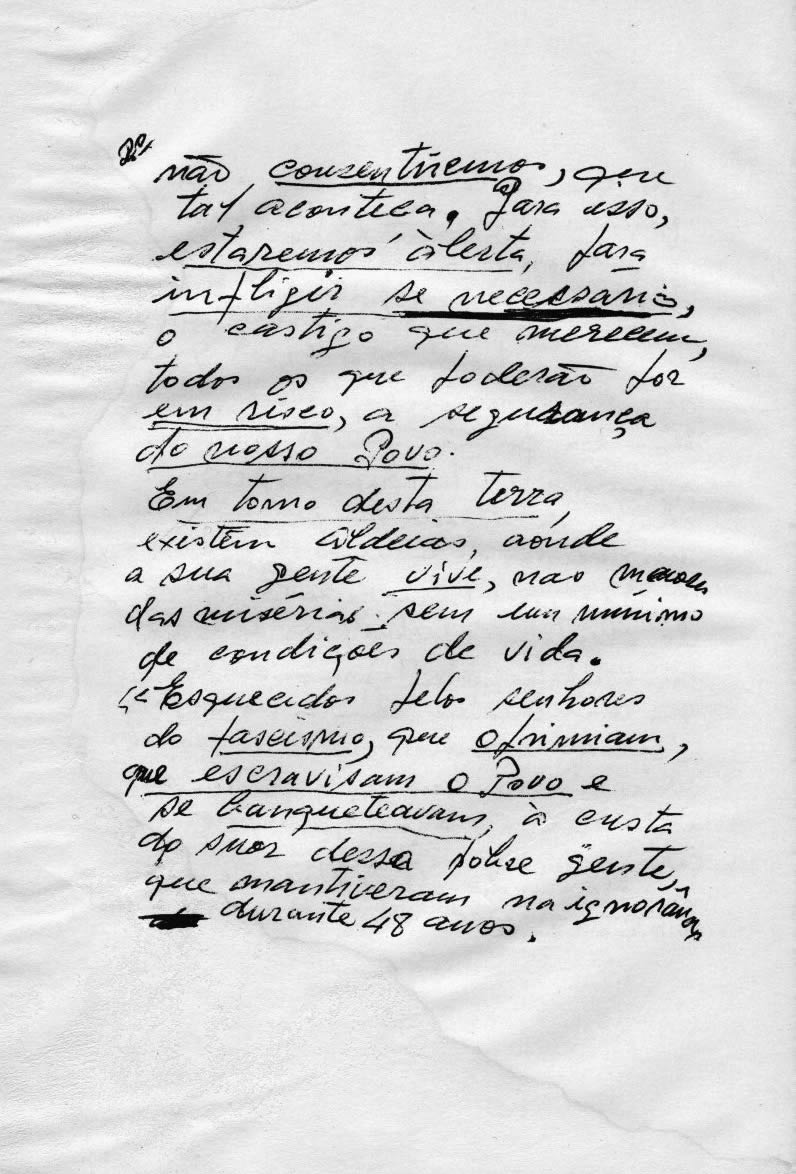 não consentiremos, que
tal aconteca. Para isso,
estaremos álerta, para
infligir se necessário,
o castigo que merecem,
todos os que poderão por
em risco, a segurança
do nosso Povo.
Em torno desta terra,
existem aldeias, aonde
a sua gente vive, nao
das misérias sem um minimo
de condições de vida.
"Esquecidos pelos senhores
do fascismo, que oprimiam,
que escravisam o Povo e
se banqueteavam, à custa
do suor dessa pobre gente,
que mantiveram na ignorância
durante 48 anos.